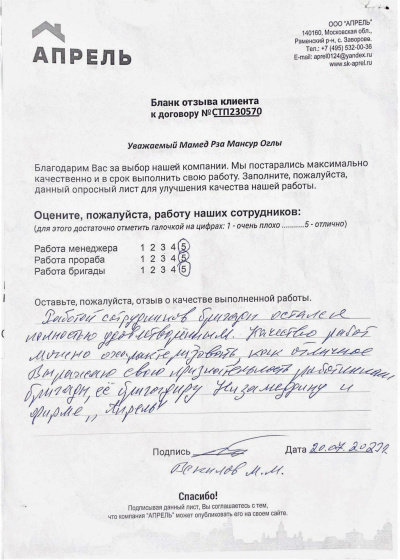 АПРЕЛЬ
ООО "АПРЕЛЬ"
140160, Московская обл.,
Раменский р-н, с. Заворово.
Тел.: +7 (495) 532-00-36
E-mail: aprel0124@yandex.ru
www.sk-aprel.ru
Бланк отзыва клиента
к договору №СТП230570
Уважаемый Мамед Рза Мансур Оглы
Благодарим Вас за выбор нашей компании. Мы постарались максимально
качественно и в срок выполнить свою работу. Заполните, пожалуйста,
данный опросный лист для улучшения качества нашей работы.
Оцените, пожалуйста, работу наших сотрудников:
(для этого достаточно отметить галочкой на цифрах: 1 - очень плохо ...........5 - отлично)
Работа менеджера 1 2 3 4 5
Работа прораба 1 2 3 4 5
Работа бригады 1 2 3 4 5
Оставьте, пожалуйста, отзыв о качестве выполненной работы.
Работой сотрудников бригады остался
полностью удовлетворенным. Качество работ
можно охарактеризовать, как отличное
Выражаю свою признательность работникам
бригады, её бригадиру Низамеддину и
фирме „Апрель"
Подпись Дата 20.07.
М.М.
Спасибо!
Подписывая данный лист, Вы соглашаетесь с тем,
что компания "АПРЕЛЬ" может опубликовать его на своем сайте.